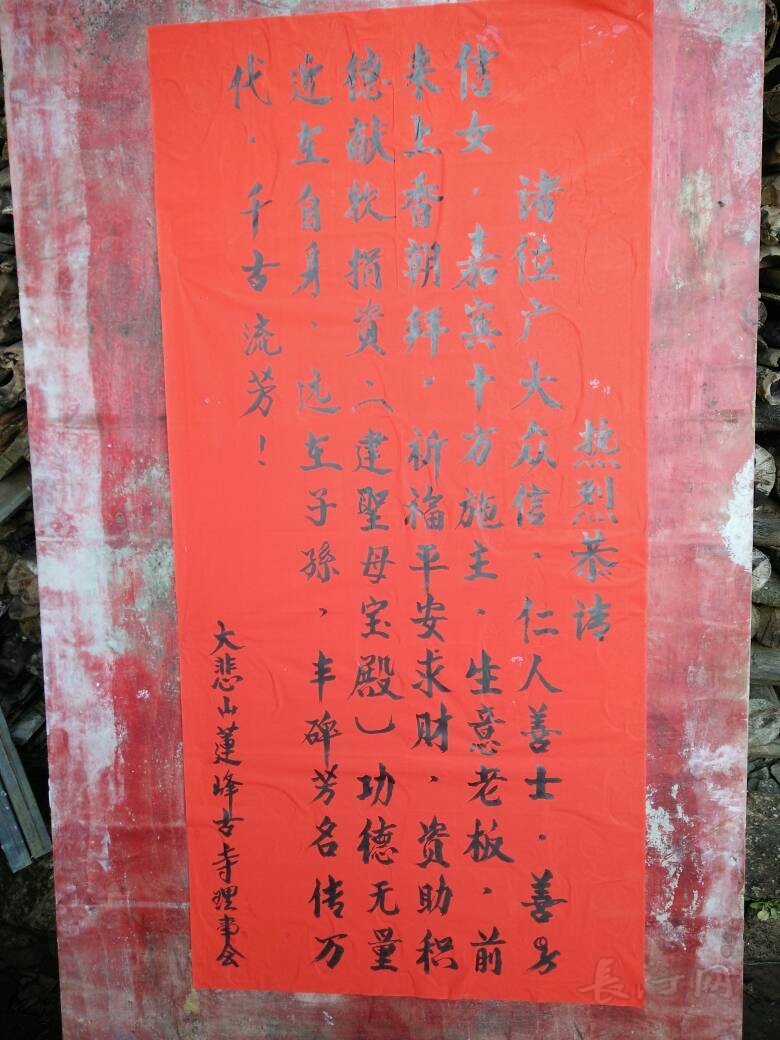 热烈恭请
诸位广大众信．仁人善士．善男
信女．嘉宾十方施主．生意老板．前
来上香朝拜．祈福平安求财．資助积
德献款捐資（建聖母宝殿）功德无量
近在自身．远在子孫，丰碑芳名传万
代．千古流芳！
大悲山蓮峰古寺理事会
長河网